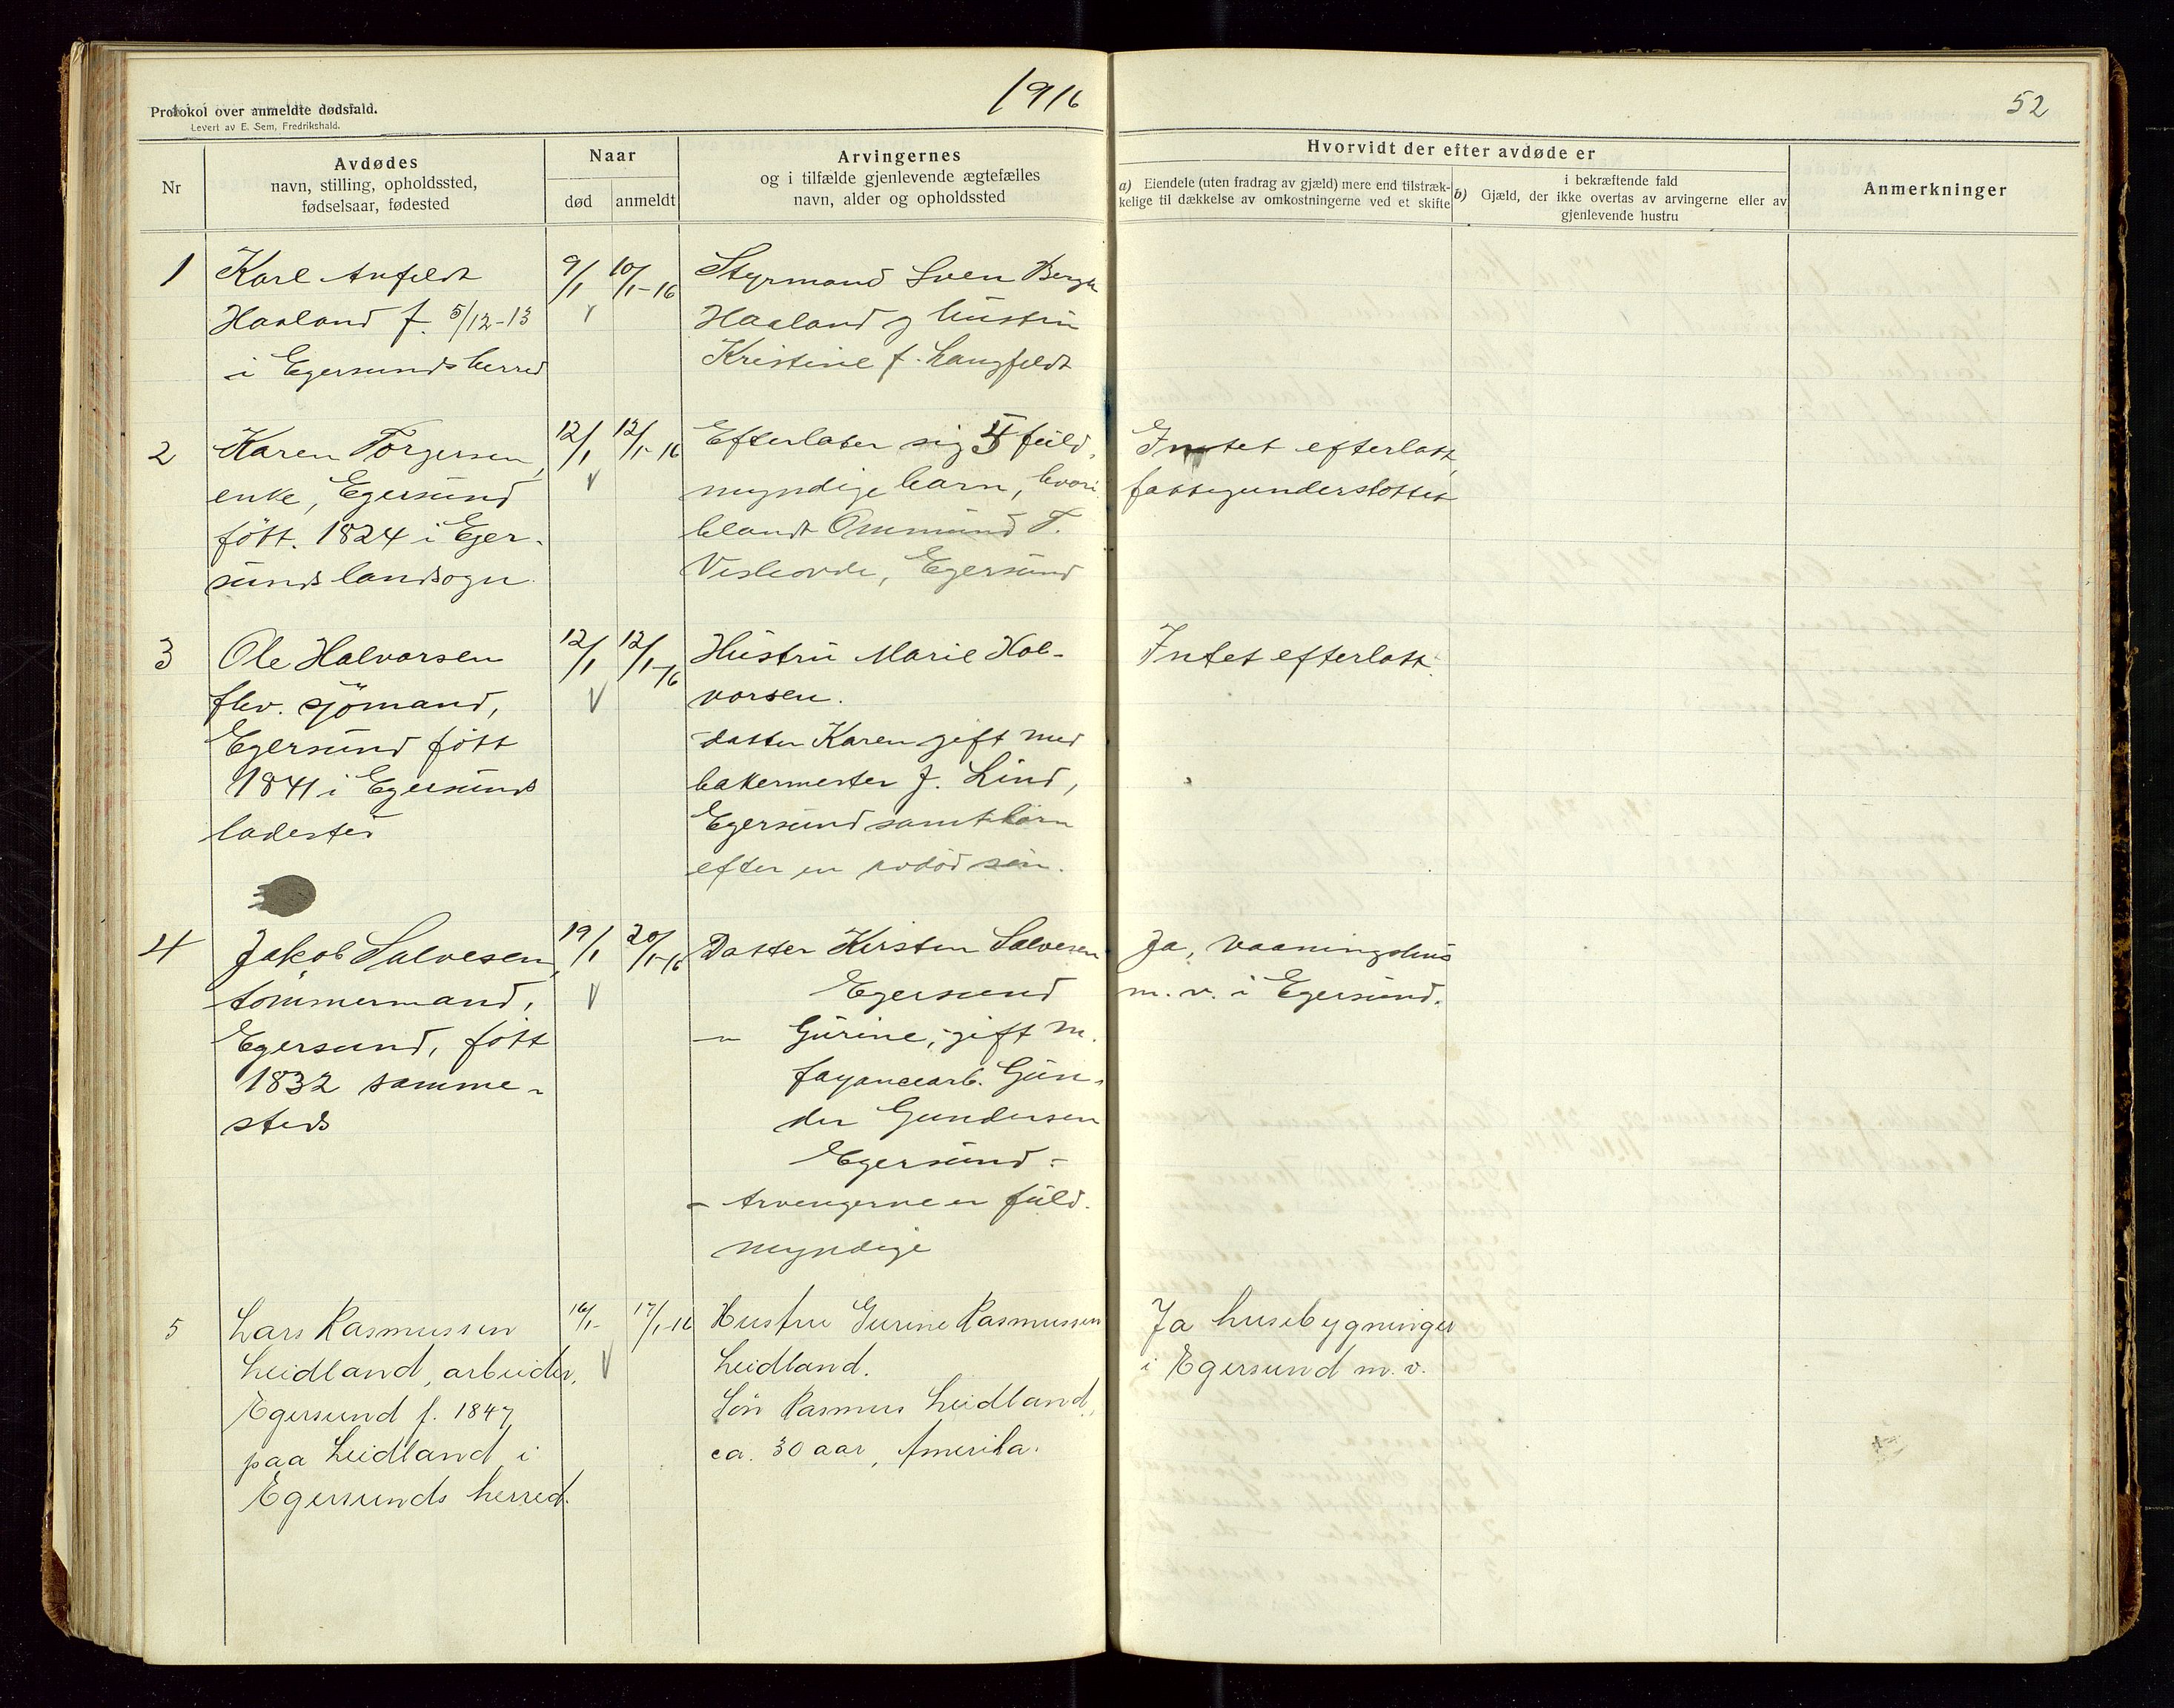 1916
52
Protokol over anmeldte dødsfald.
Levert av E. Sem, Fredrikshald.
Nr
Avdødes
navn, stilling, opholdssted,
fødselsaar, fødested
Naar
død
anmeldt
Arvingernes
og i tilfælde gjenlevende ægtefælles
navn, alder og opholdssted
Hvorvidt der efter avdøde er
a) Eiendele (uten fradrag av gjæld) mere end tilstræk-
kelige til dækkelse av omkostningerne ved et skifte
i bekræftende fald
b) Gjæld, der ikke overtas av arvingerne eller av
gjenlevende hustru
Anmerkninger
1
Karl Anfeldt
Haaland f. 5/12-13
i Egersunds herred
9/1
10/1-16
Styrmand Sven
Haaland og hustru
Kristine f. Langfeldt
2
Karen Torgersen,
enke, Egersund
født. 1824 i Eger-
sunds landsogn.
12/1
12/1-16
Efterlater sig 5 fuld-
myndige barn, hvori-
blandt Ommund T.
Egersund
Intet efterlatt,
fattigunderstøttet
3
Ole Halvorsen
fhv. sjömand,
Egersund født
1841 i Egersunds
ladested
12/1
12/1-16
Hustru Marie Hal-
vorsen.
datter Karen gift med
bakermester J. Lind,
Egersund samt børn
efter en avdød søn.
Intet efterlatt.
4
Jakob Salvesen,
tømmermand,
Egersund, født
1832 samme-
steds
19/1
20/1-16
Datter Kirsten Salvesen
Egersund
-"- Gurine, gift m.
fayancearb. Gun-
der Gundersen
Egersund -
- Arvingerne er fuld-
myndige
Ja, vaaningshus
m. v. i Egersund.
5
Lars Rasmussen
Leidland, arbeider,
Egersund f. 1847
paa Leidland i
Egersunds herred.
16/1-
17/1-16
Hustru Gurine Rasmussen
Leidland.
Søn Rasmus Leidland,
ca. 30 aar, Amerika.
Ja husebygninger
i Egersund m. v.